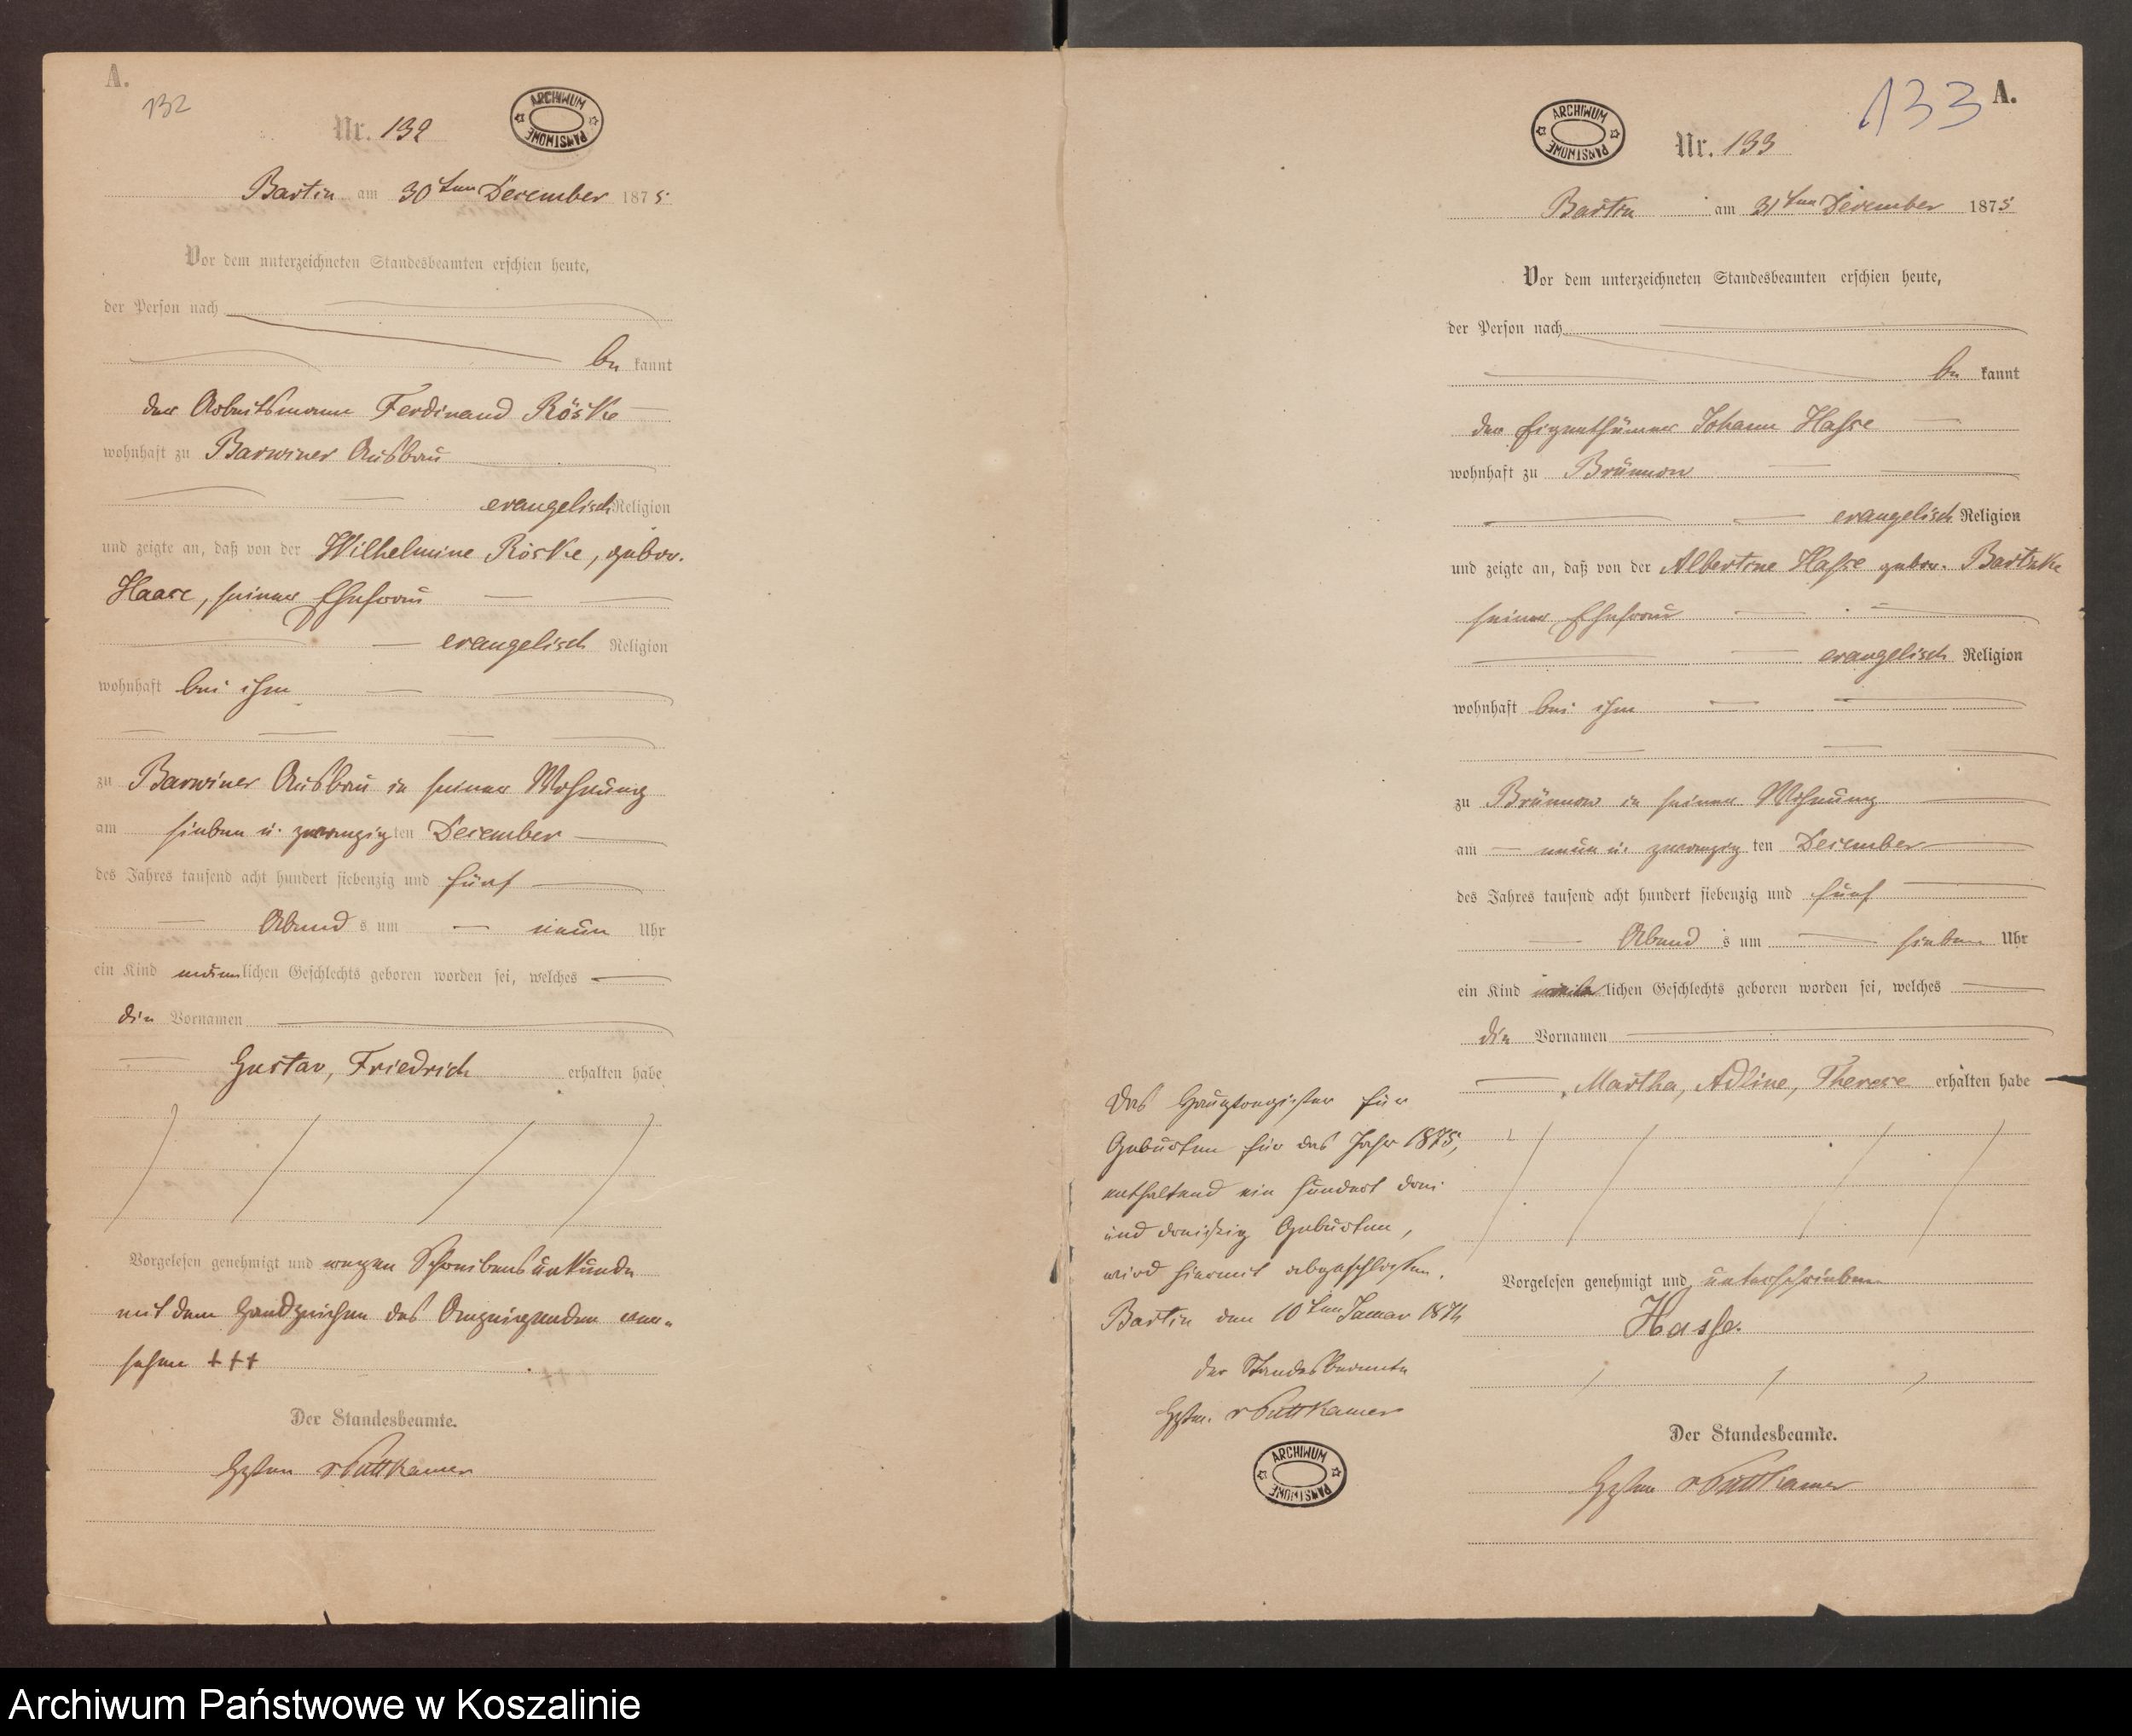 A.
132
Nr. 132
ARCHIWUM PAŃSTWOWE
Bartin am 30ten December 1875
Vor dem unterzeichneten Standesbeamten erschien heute,
der Person nach
be kannt
der Arbeitsmann Ferdinand Röske
wohnhaft zu Barwiner Ausbau
evangelisch Religion
und zeigte an, daß von der Wilhelmine Röske, gebor.
Haase, seiner Ehefrau
evangelisch Religion
wohnhaft bei ihm
zu Barwiner Ausbau in seiner Wohnung
am sieben u. zwanzig ten December
des Jahres tausend acht hundert siebenzig und fünf
Abend s um neun Uhr
ein Kind männlichen Geschlechts geboren worden sei, welches
die Vornamen
Gustav, Friedrich erhalten habe
Vorgelesen genehmigt und wegen Schreibensunkunde
mit dem Handzeichen des Anzeigenden ver-
sehen +++
Der Standesbeamte.
v Puttkamer
133
A.
ARCHIWUM PAŃSTWOWE
Nr. 133
Bartin am 31ten December 1875
Vor dem unterzeichneten Standesbeamten erschien heute,
der Person nach
be kannt
der Eigenthümer Johann Hasse
wohnhaft zu Brünnow
evangelisch Religion
und zeigte an, daß von der Albertine Hasse gebor. Bartzke
seiner Ehefrau
evangelisch Religion
wohnhaft bei ihm
zu Brünnow in seiner Wohnung
am neun u. zwanzig ten December
des Jahres tausend acht hundert siebenzig und fünf
Abend s um sieben Uhr
ein Kind weiblichen Geschlechts geboren worden sei, welches
die Vornamen
Martha, Adline, Therese erhalten habe
Vorgelesen genehmigt und unterschrieben
Hasse.
Der Standesbeamte.
v Puttkamer
Das Hauptregister für
Geburten für das Jahr 1875,
enthaltend ein hundert drei
und dreißig Geburten,
wird hiermit abgeschlossen.
Bartin den 10ten Januar 1876
Der Standesbeamte
v Puttkamer
ARCHIWUM PAŃSTWOWE
Archiwum Państwowe w Koszalinie